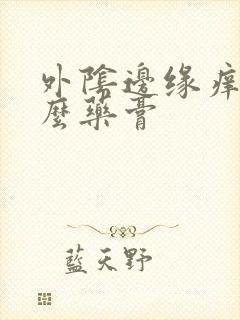 外陰邊缘痒
麽藥膏
藍天野